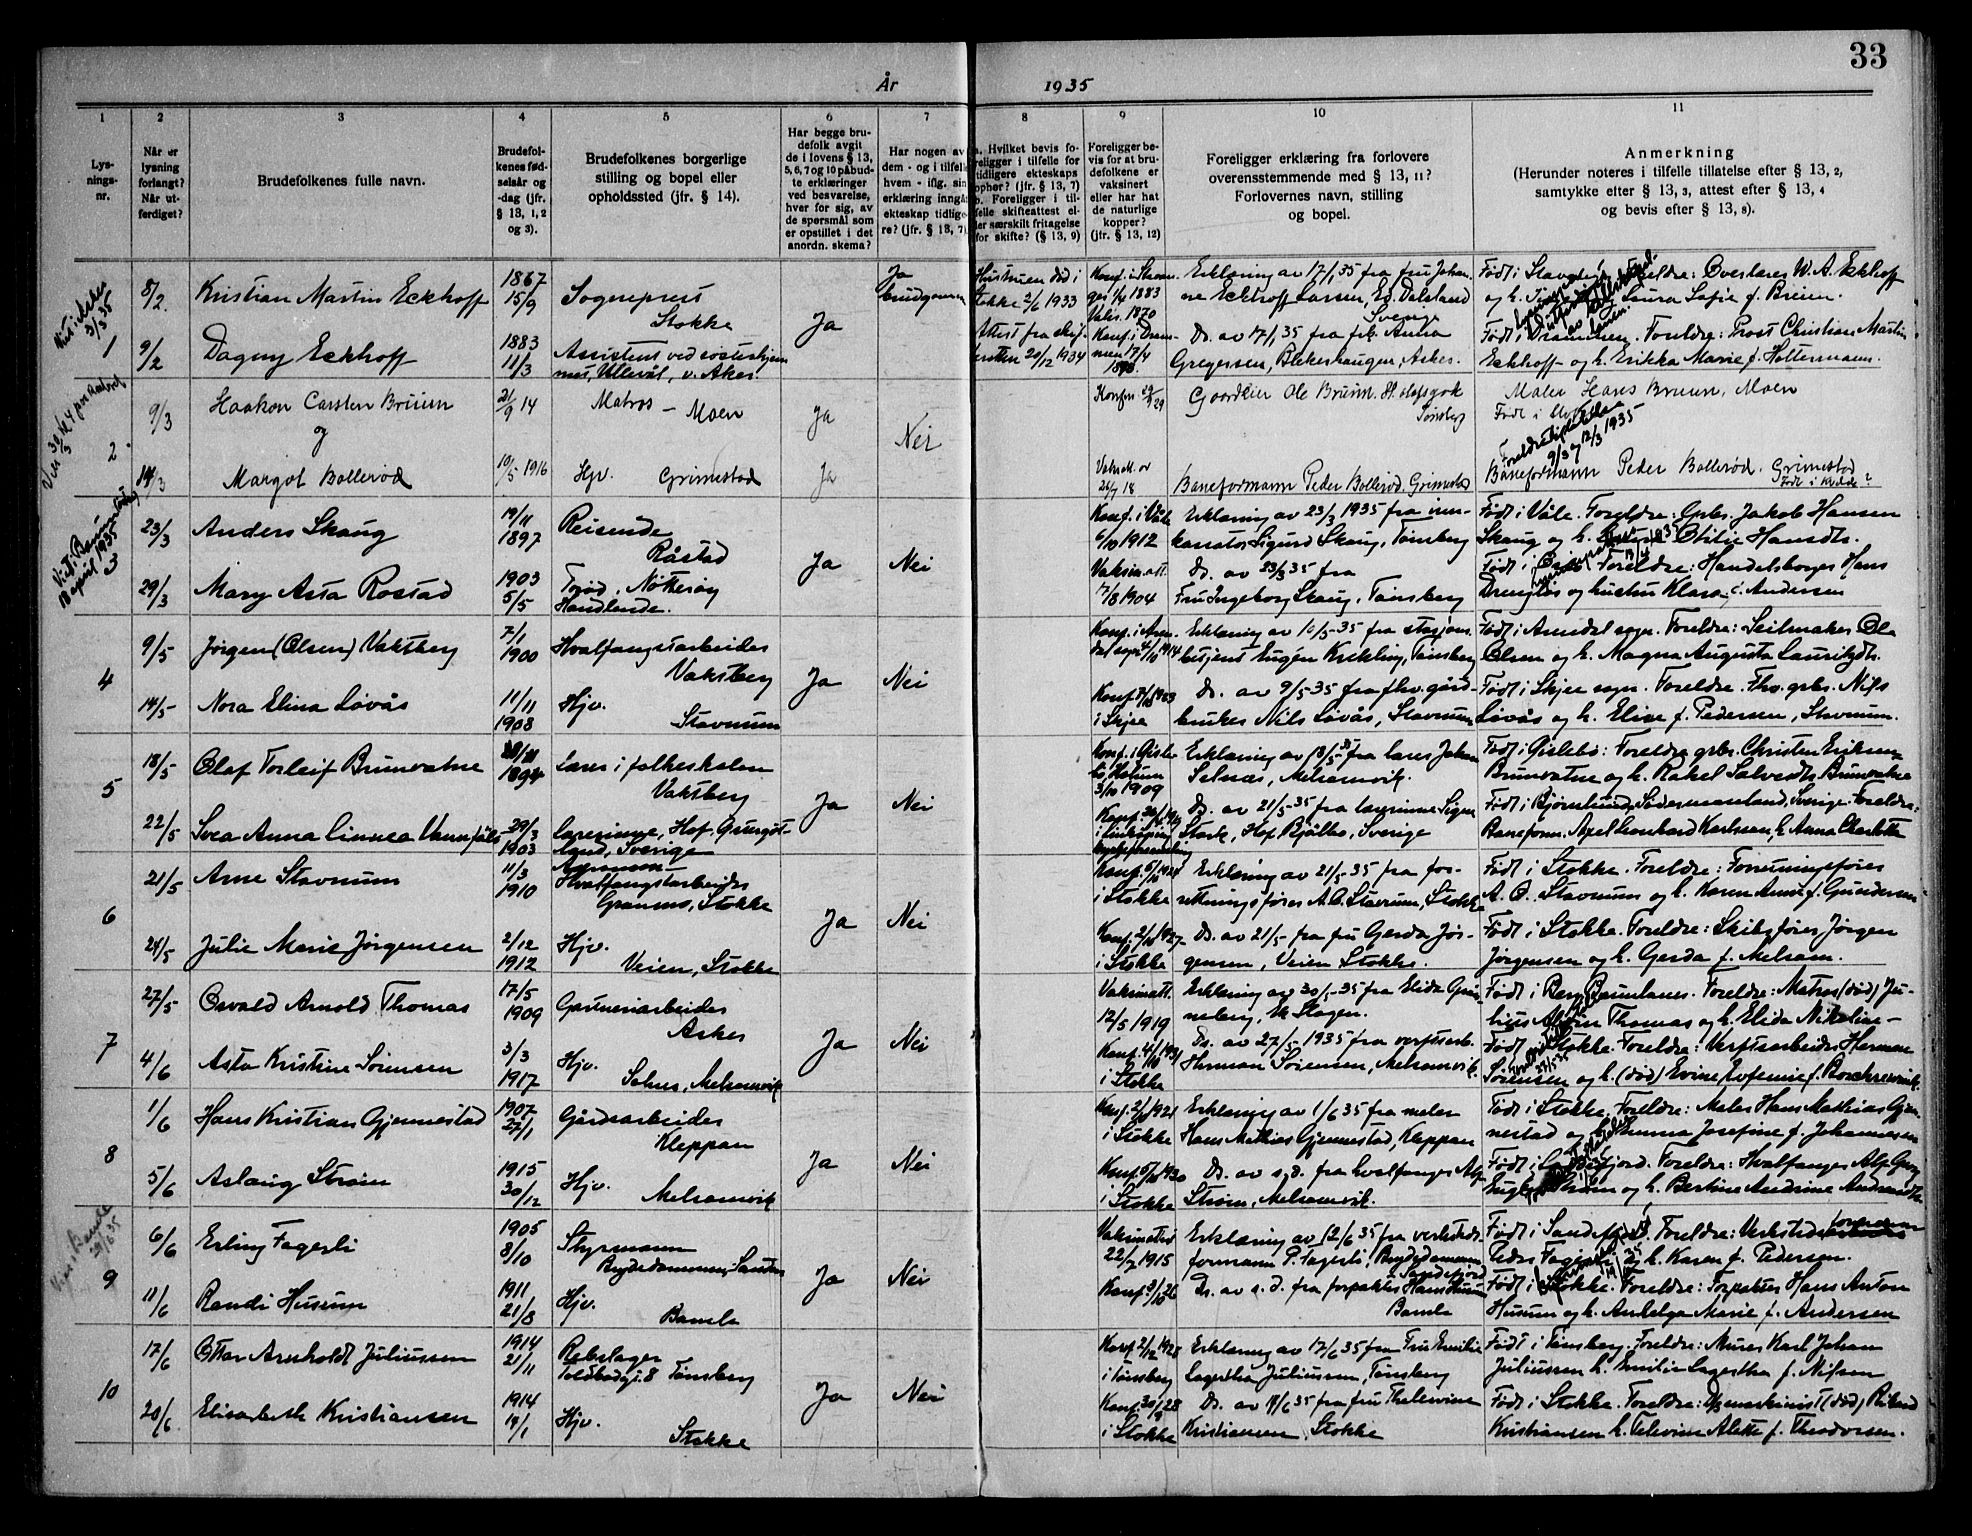 33
År 1935
1 2 3 4 5 6 7 8 9 10 11
Lys-
nings-
nr.
Når er
lysning
forlangt?
Når ut-
ferdiget?
Brudefolkenes fulle navn.
Brudefol-
kenes fød-
selsår og
-dag (jfr.
§ 13, 1, 2
og 3).
Brudefolkenes borgerlige
stilling og bopel eller
opholdssted (jfr. § 14).
Har begge bru-
defolk avgit
de i lovens § 13,
5, 6, 7 og 10 påbud-
te erklæringer
ved besvarelse,
hver for sig, av
de spørsmål som
er opstillet i det
anordn. skema?
Har nogen av
dem - og i tilfelle
hvem - iflg. sin
erklæring inngå
ekteskap tidlige-
re? (jfr. § 13, 7).
a. Hvilket bevis fo-
religger i tilfelle for
tidligere ekteskaps
ophør? (jfr. § 13, 7)
b. Foreligger i til-
felle skifteattest el-
ler særskilt fritagelse
for skifte? (§ 13, 9)
Foreligger be-
vis for at bru-
defolkene er
vaksinert
eller har hat
de naturlige
kopper?
(jfr. § 13, 12)
Foreligger erklæring fra forlovere
overensstemmende med § 13, 11?
Forlovernes navn, stilling
og bopel.
Anmerkning
(Herunder noteres i tilfelle tillatelse efter § 13, 2,
samtykke efter § 13, 3, attest efter § 13, 4
og bevis efter § 13, 8).
Viet i Asker
3/3 35
1
8/2 Kristian Martin Eckhoff 1867 15/9 Sogneprest
Stokke
Ja
Ja
brudgommen
Hustruen død i
Stokke 2/6 1933
Konf. i Stavan-
ger 1/4 1883
Vaks. 1870
Erklæring av 17/1 35 fra fru Johan-
ne Eckhoff Larsen, Ed. Dalsland
Sverige
Født i Stavanger. Foreldre: Overlærer W. A. Eckhoff
og h. Laura Sofie f. Brün.
9/2 Dagny Eckhoff 1883 11/3 Assistent ved søsterhjem
met, Ullevål, v. Aker.
Attest fra skif-
teretten 20/12 1934
Konf. i Dram-
men 17/4
1898.
Do. av 17/1 35 fra frk. Anna
Gregersen, Blekerhaugen, Asker.
Født i Drammen. Foreldre: Prost Christian Martin
Eckhoff og h. Erikka Marie f. Holtermann.
2.
9/3 Haakon Carsten Bruun 21/9 14 Matros - Moen
Ja
og
Nei
Konfm 29/9 29
Gaardeier Ole Bruun. St. olafsgok
Tønsberg
Maler Hans Bruun, Moen
Født i
Foreldretillatelse
9/3 og 12/3 1935
14/3 Margot Bollerød 10/5 1916 Hjv. Grimestad
Ja
Vaksatt. av
26/7 18
Baneformann Peder Bollerød. Grimestad
Baneformann Peder Bollerød. Grimestad
Født i Kvelde?
Viet i
18 april 1935
3
23/3 Anders Skaug 19/11 1897 Reisende
Råstad
Ja Nei
Konf. i Våle
6/10 1912
Erklæring av 23/3 1935 fra inn-
kassator Sigurd Skaug, Tønsberg
Født i Våle. Foreldre: Grbr. Jakob Hansen
Skaug og h. Otilie Hansdtr.
29/3 Mary Asta Rostad 1903 5/5 Torød, Nøtterøy
Handlende.
Vaksin.att.
17/8 1904
Do. av 23/3 35 fra
Fru Ingeborg Skaug, Tønsberg
Foreldre: Handelsborger Hans
og hustru Klara f. Andersen
4
9/5 Jørgen (Olsen) Vaksberg 7/1 1900 Hvalfangstarbeider
Vaksberg
Ja Nei
Konf. i Aren-
dal sogn 4/10 1914
Erklæring av 10/5-35 fra stasjons-
betjent Eugen Krekling, Tønsberg
Født i Arendal sogn. Foreldre: Seilmaker Ole
Olsen og h. Magna Augusta Lauritzdtr.
14/5 Nora Elina Løvås 11/11 1908 Hjv.
Stavnum
i Skjee
Do. av 9/5-35 fra fhv. gård-
bruker Nils Løvås, Stavnum
Født i Skjee sogn. Foreldre: Fhv. grbr. Nils
Løvås og h. Elise f. Pedersen, Stavnum.
5
18/5 Olaf Torleif Brunvatne 1894 Lærer i folkeskolen
Vaksberg
Ja Nei
3/10 1909
Erklæring av 18/5 35 fra lærer Johan
Selnæs, Melsomvik.
Født i Gislebø: Foreldre grbr. Christen Eriksen
Brunvatne og h. Rakel Salvesdtr. Brunvatne
22/5 Svea Anna Linnea 29/3 1903 Lærerinne, Hof,
land, Sverige
Do. av 21/5-35 fra lærerinne Signe
Stark, Hof Bjälbo, Sverige
Født i Bjørnlunda, Södermanland, Sverige. Foreldre:
Baneform. Axel Leonhard Karlsson, h. Anna Charlotte
6
21/5 Arne Stavnum 11/3 1910
Hvalfangstarbeider
Stokke
Ja Nei
Konf. 5/10 1924
i Stokke
Erklæring av 21/5-35 fra for-
retningsfører A. O. Stavnum, Stokke
Født i Stokke. Foreldre: Forretningsfører
A. O. Stavnum og h. Karen Anna f. Gundersen
24/5 Julie Marie Jørgensen 2/12 1912 Hjv.
Veien, Stokke
Konf. 2/10 1927
i Stokke
Do. av 21/5- fra fru Gerda Jør-
gensen, Veien Stokke.
Født i Stokke. Foreldre: Skibsfører Jørgen
Jørgensen og h. Gerda f. Melsom.
7
27/5 Osvald Arnold Thomas 17/5 1909 Gartneriarbeider
Asker
Ja Nei
Vaksinatt.
12/5 1919
Erklæring av 30/5-35 fra Elida Grü-
neberg, N. Slagen.
Foreldre: Matros (død) Ju-
lius Thomas og h. Elida Nikoline
4/6 Asta Kristine Sørensen 3/3 1917 Hjv.
Solnes, Melsomvik
Konf. 4/10 1931
i Stokke
Do. av 27/5-1935 fra verftsarb.
Herman Sørensen, Melsomvik.
Født i Stokke. Foreldre: Verftsarbeider Herman
Sørensen og h. (død) Evine
8
1/6 Hans Kristian Gjennestad 1907 27/1 Gårdsarbeider
Kleppan
Ja Nei
Konf. 2/10 1921
i Stokke
Erklæring av 1/6 35 fra maler
Hans Mathias Gjennestad, Kleppan
Født i Stokke. Foreldre: Maler Hans Mathias Gjen-
nestad og h. Emma Josefine f. Johannesen
5/6 Aslaug Strøm 1915 30/12 Hjv.
Melsomvik
Konf. 5/10 1930
i Stokke
Do. av s.d. fra hvalfanger Alf
Strøm, Melsomvik.
Født i Sandefjord. Foreldre: Hvalfanger Alf Georg
Strøm og h. Bertine Andrine
Viet i Bamle
29/6 35
9
6/6 Erling Fagerli 1905 8/10 Styrmann
Ja Nei
Vaksinatest
22/7 1915
Erklæring av 12/6 35 fra verksteds-
formann P. Fagerli,
Sandefjord
Født i Sandefjord. Foreldre: Verksteds formann
Peder Fagerli og h. Karen f. Pedersen.
11/6 Randi Husum 1911 21/8 Hjv.
Bamle
Do. av s. d. fra forpakter Hans Husum
Bamle
Født i Stokke. Foreldre: Forpakter Hans Anton
Husum og h. Antelga Marie f. Andersen
10
17/6 Ottar Arnholdt Juliussen 1914 21/11 Rebslager
Toldbodgt. 8 Tønsberg
Ja Nei
Konf. 2/12 1928
i Tønsberg
Erklæring av 17/6 35 fra Fru Emilie
Lagertha Juliussen, Tønsberg
Født i Tønsberg. Foreldre: Murer Karl Johan
Juliussen h. Emilie Lagertha f. Nilsen
20/6 Elisabeth Kristiansen 1914 19/1 Hjv.
Stokke
Konf. 30/9 28
i Stokke
Do. av 17/6 35 fra fru Thelevine
Kristiansen, Stokke
Født i Stokke. Foreldre: (død) Rikard
Kristiansen h. Televine Alette f. Theodorsen.